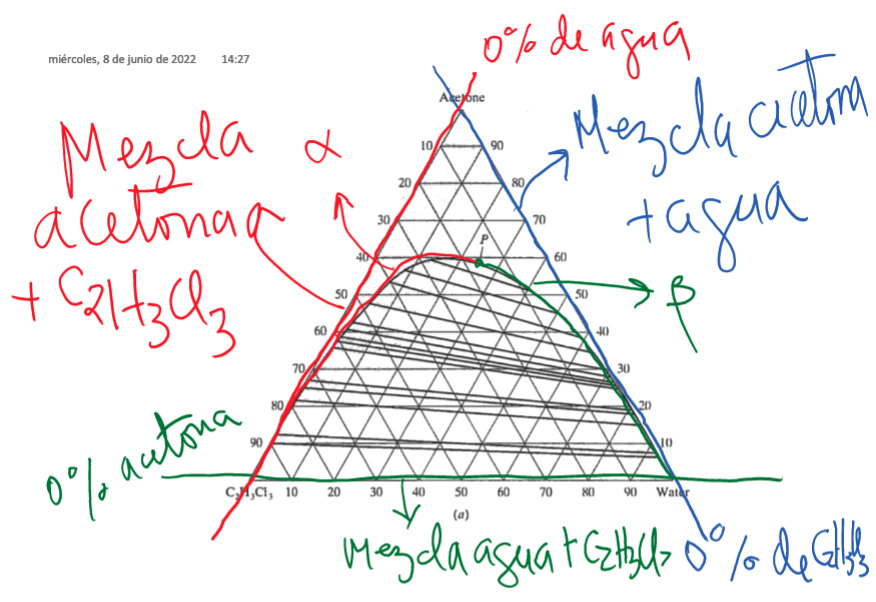 miércoles, 8 de junio de 2022 14:27
0% de agua
Acetone
Mezcla
acetona
+ C2H3Cl3
α
Mezcla acetona
+ agua
10 90
20 80
30 70
P
40 60
50 50
β
60 40
70 30
80 20
90 10
0% acetona
C2H3Cl3 10 20 30 40 50 60 70 80 90 Water
(a)
Mezcla agua + C2H3Cl3
0% de C2H3Cl3